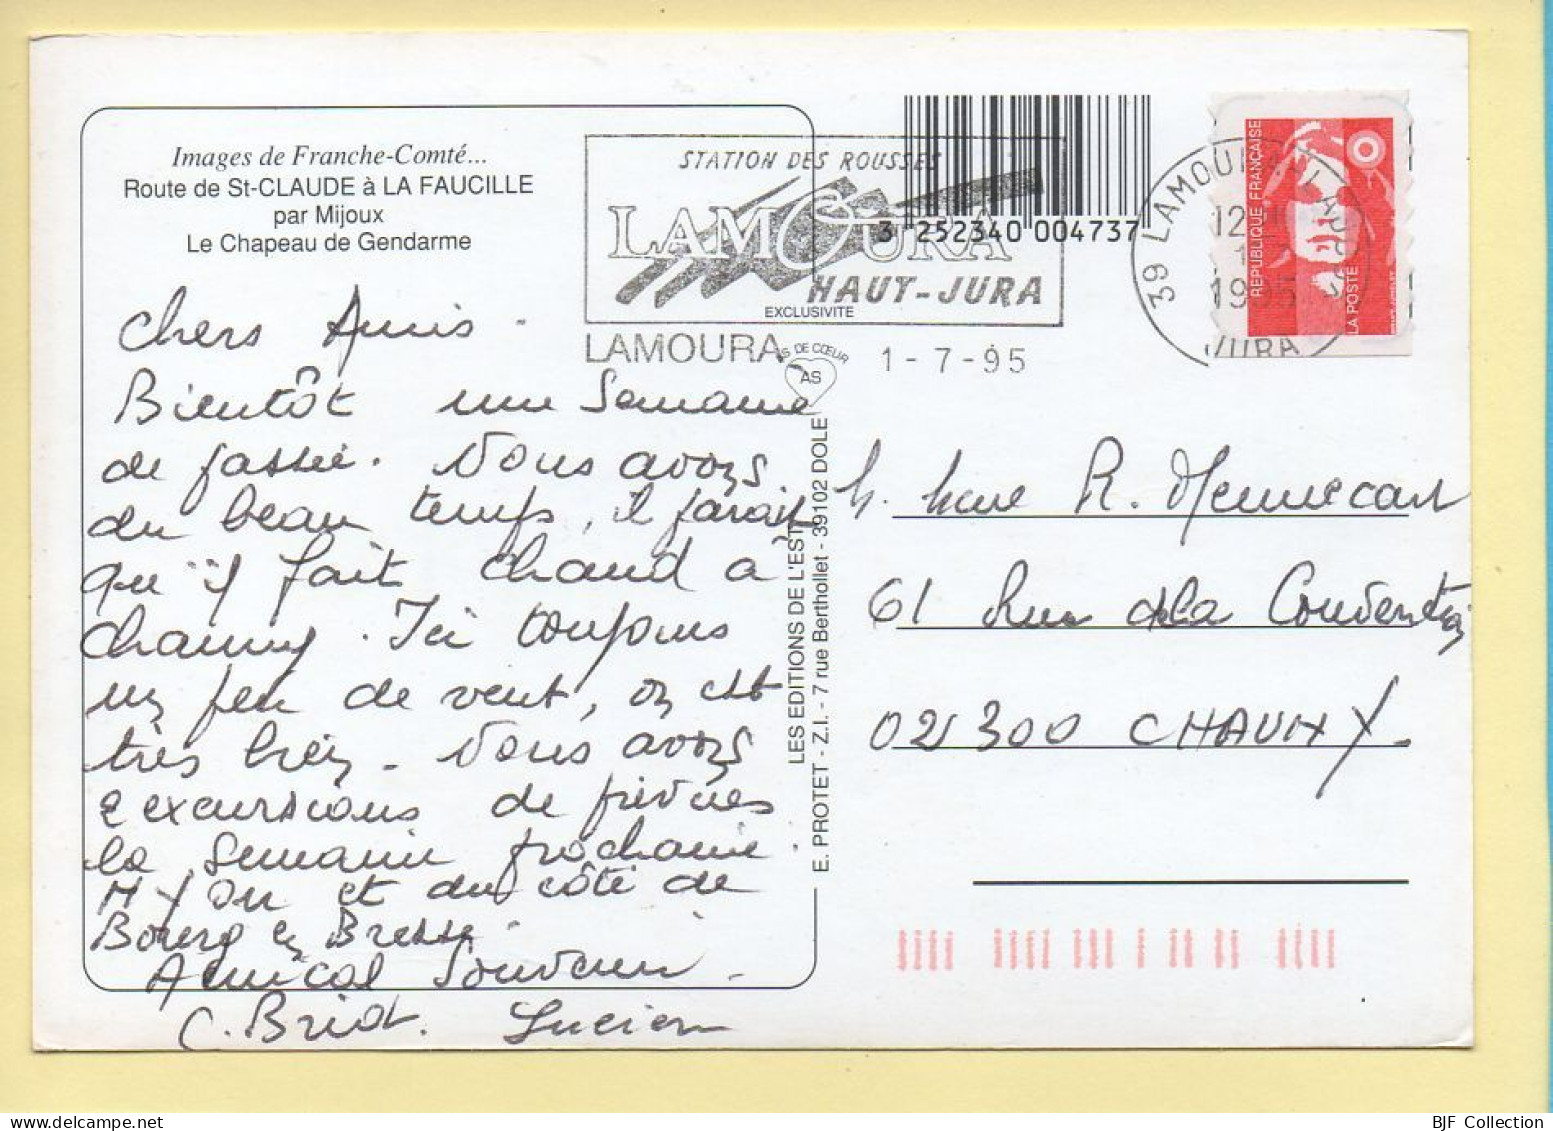 Images de Franche-Comté...
Route de St-CLAUDE à LA FAUCILLE
par Mijoux
Le Chapeau de Gendarme
Chers Amis.
Bientôt une Semaine
de passée. Nous avons
du beau temps, il parait
qu'il fait chaud a
chauny. Ici toujours
un peu de vent, on est
très bien. Nous avons
2 excursions de prévues
la Semaine prochaine
Lyon et du côté de
Bourg en Bresse.
Amical Souvenir.
C. Briot. Lucien
STATION DES ROUSSES
LAMOURA
HAUT-JURA
LAMOURA 1-7-95
3 252340 004737
EXCLUSIVITE
AS DE CŒUR
AS
LES EDITIONS DE L'EST
E. PROTET - Z.I. - 7 rue Berthollet - 39102 DOLE
39 LAMOURA
12 H
1-7
1995
JURA
REPUBLIQUE FRANÇAISE
LA POSTE
M. Mme R. Mennecart
61 Rue de la Convention
02300 CHAUNY.
BJF Collection